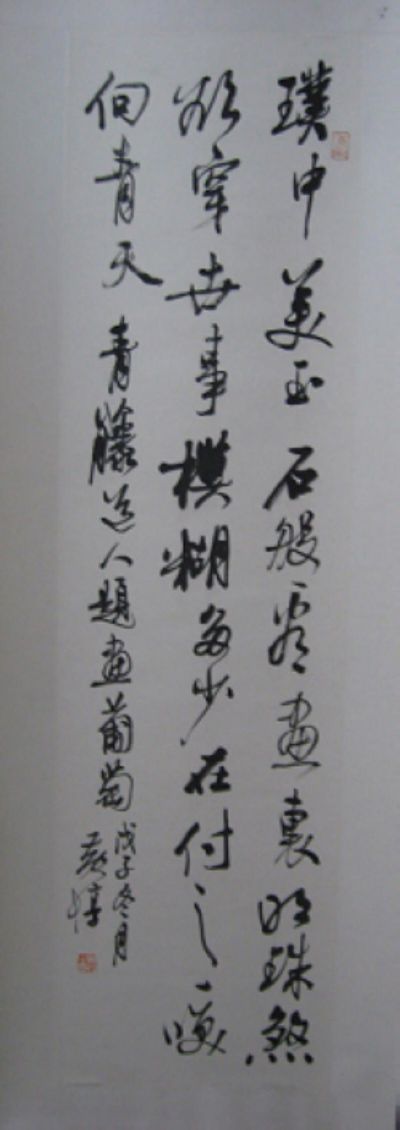 璞中美玉石般看畫裏明珠煞
欲穿世事模糊多少在付之一咲
向青天 青藤道人題畫葡萄
戊子冬月